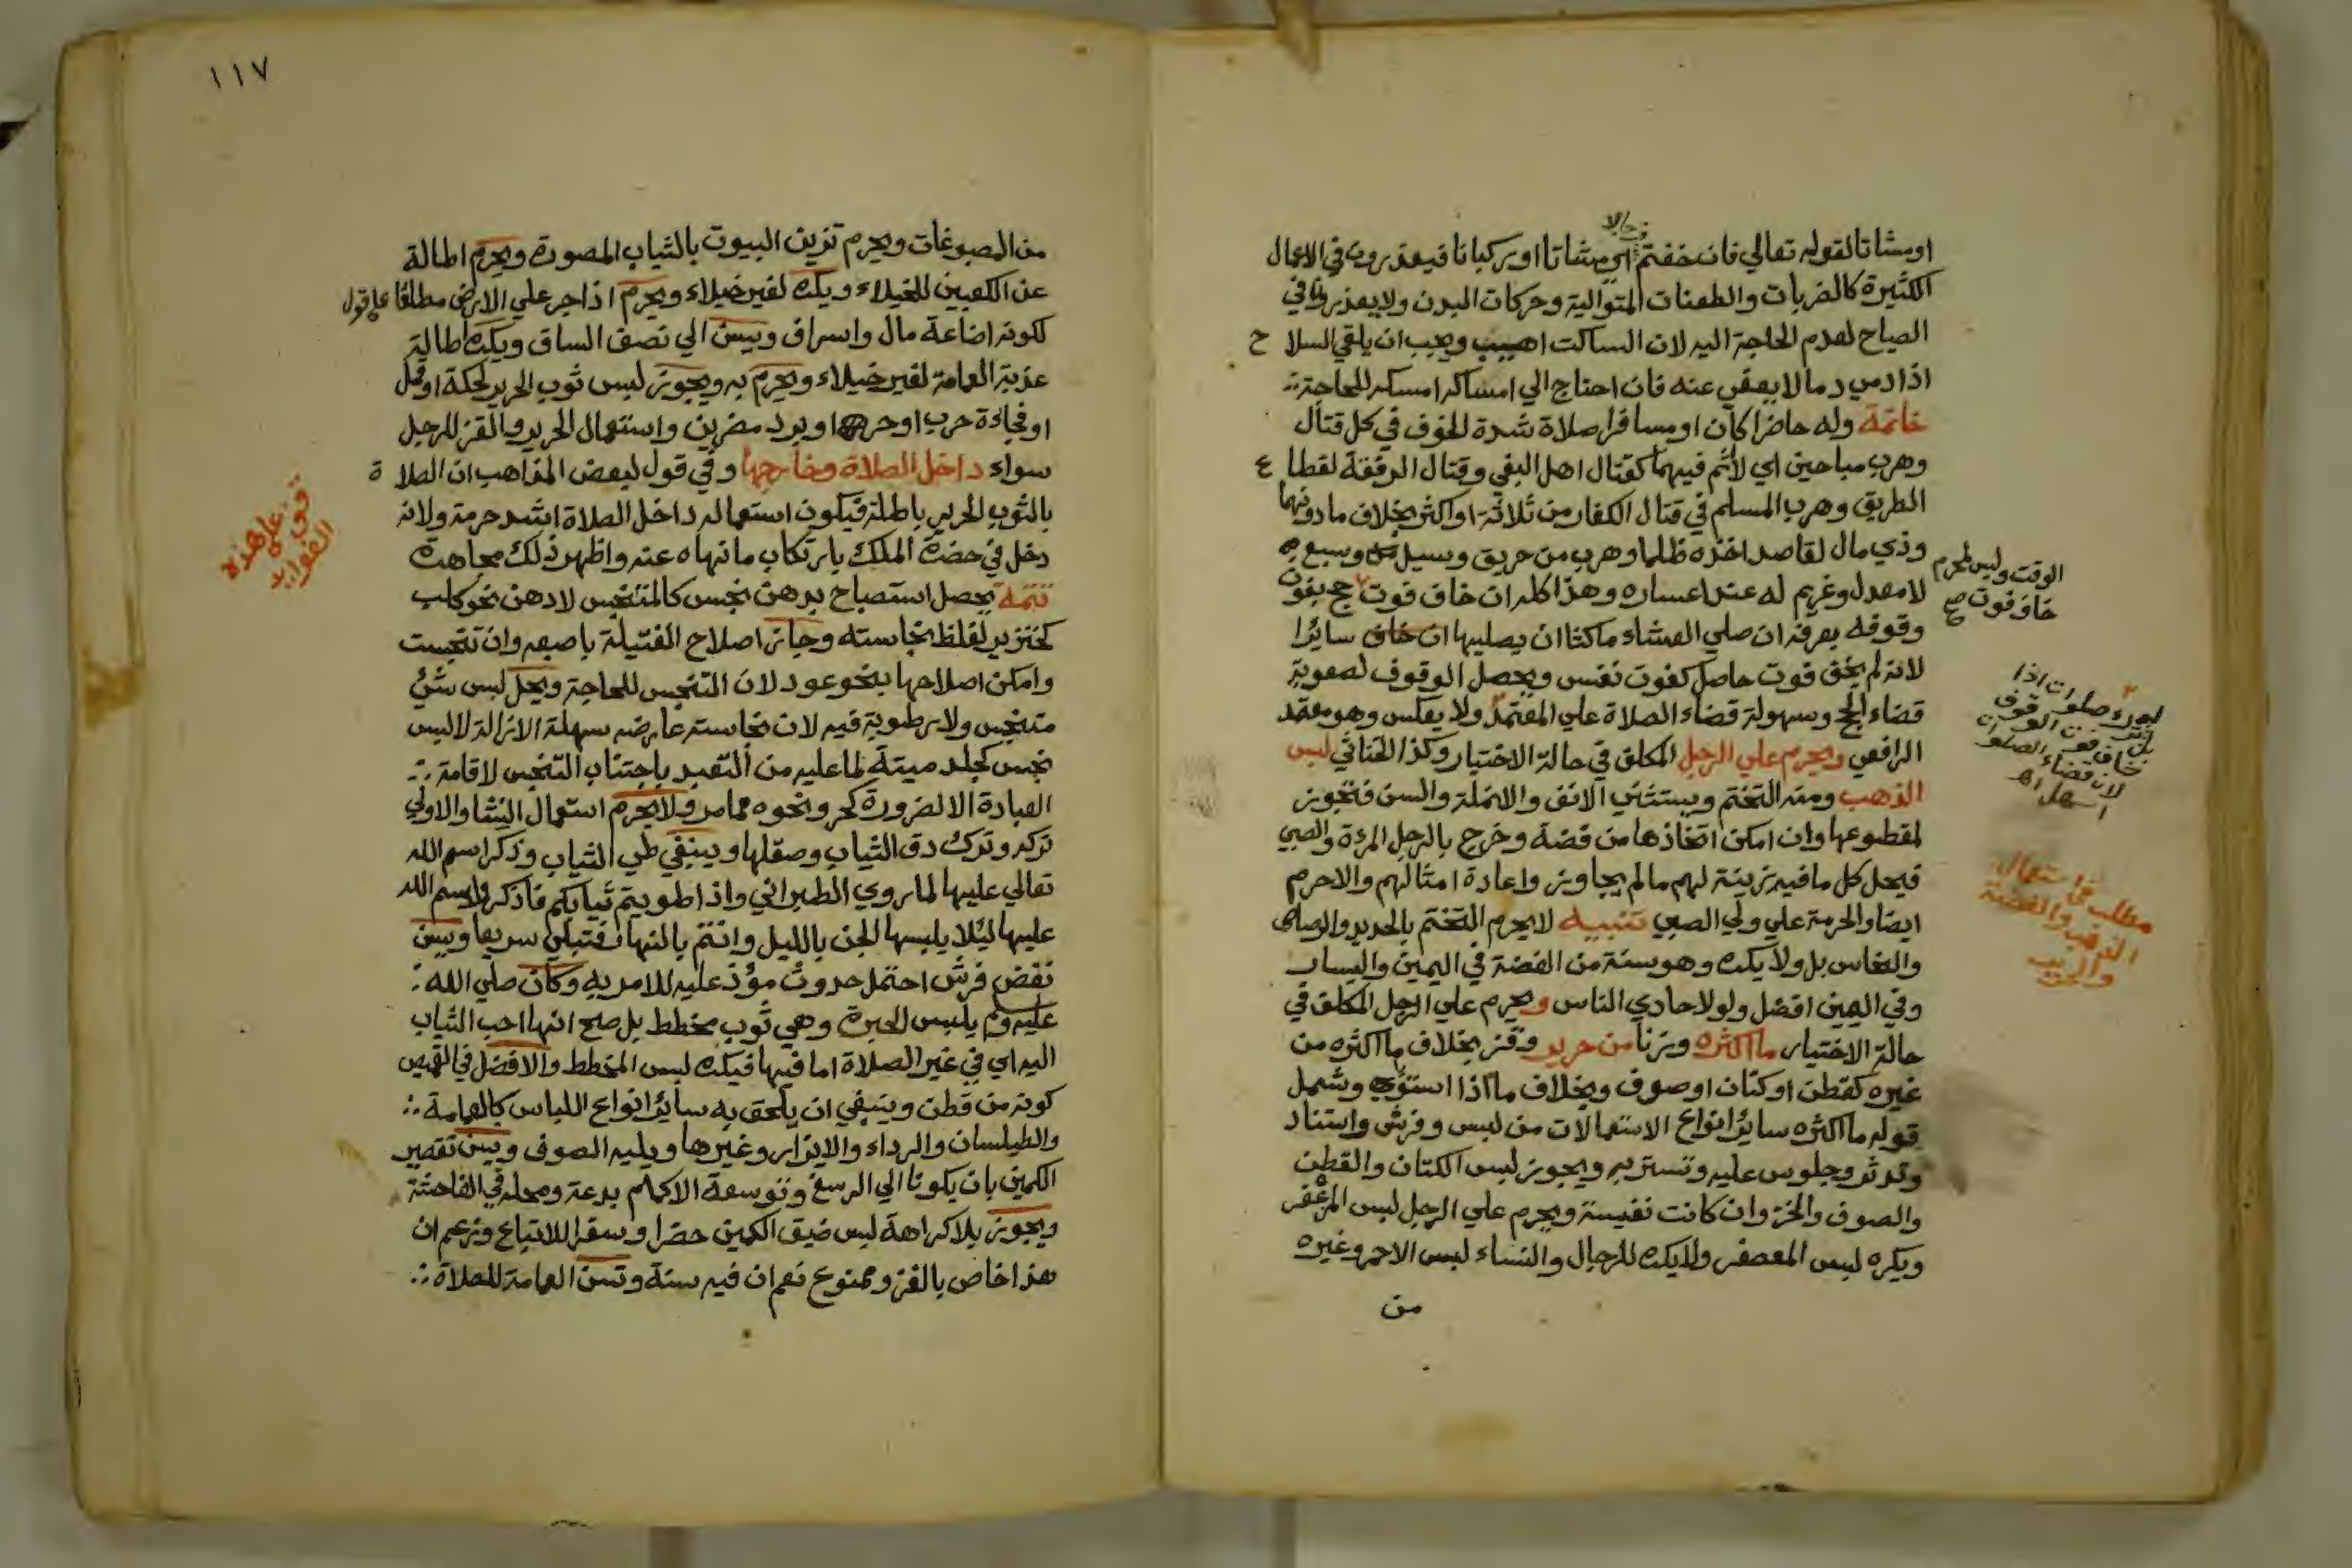 او مشاتا لقوله تعالي فان خفتم اي مشاتا او ركبانا فيعذرون في الاعمال
الكثيرة كالضربات والطعنات المتوالية وحركات البدن ولا يعذر في
الصياح لعدم الحاجة اليه لان الساكت اهيب ويجب ان يلقي السلاح
اذا دمي دما لا يعفي عنه فان احتاج الي امساكه امسكه للحاجة
خاتمة وله حاضرا كان او مسافرا صلاة شدة الخوف في كل قتال
وهرب مباحين اي لا اثم فيهما كقتال اهل البغي وقتال الرفقة لقطاع
الطريق وهرب المسلم في قتال الكفار من ثلاثة او اكثر بخلاف ما دونهما
وذي مال لقاصد اخذه ظلما وهرب من حريق وسيل وسبع
لا معدل وغريم له عند اعساره وهذا كله ان خاف فوت حج بفوت
وقوفه بعرفة ان صلي العشاء ماكثا ان يصليها ان خاف سائرا
لانه لم يخف فوت حاصل كفوت نفس ويحصل الوقوف لصعوبة
قضاء الحج وسهولة قضاء الصلاة علي المعتمد ولا يعكس وهو معتمد
الرافعي ويحرم علي الرجل المكلف في حالة الاختيار وكذا الخناثي لبس
الذهب ومنه التختم ويستثني الانف والانملة والسن فتجوز
لمقطوعها وان امكن اتخاذها من فضة وخرج بالرجل المرءة والصبي
فيحل كل ما فيه زينة لهم ما لم يجاوز واعادة امثالهم والا حرم
ايضا والحرمة علي ولي الصبي تنبيه لا يحرم التختم بالحديد والرصاص
والنحاس بل ولا يكره وهو سنة من الفضة في اليمين واليسار
وفي اليمين افضل ولو لا حادي الناس ويحرم علي الرجل المكلف في
حالة الاختيار ما اكثره وزنا من حرير وقز بخلاف ما اكثره من
غيره كقطن او كتان او صوف وبخلاف ما اذا استوي وشمل
قوله ما اكثره سائر انواع الاستعمالات من لبس وفرش واستناد
وتدثر وجلوس عليه وتستر به ويجوز لبس الكتان والقطن
والصوف والخز وان كانت نفيسة ويحرم علي الرجل لبس المزعفر
ويكره لبس المعصفر ولا يكره للرجال والنساء لبس الاحمر وغيره
من
الوقت وليس لمحرم
خاف فوت
لان قضاء الصلوات
اسهل اه
مطلب في استعمال
الذهب والفضة
والحرير
١١٧
من المصبوغات ويحرم تزين البيوت بالثياب المصورة ويحرم اطالة
عن الكعبين للخيلاء ويكره لغير خيلاء ويحرم اذا جر علي الارض مطلقا علي قول
لكونه اضاعة مال واسراف ويسن الي نصف الساق ويكره اطالة
عذبة العمامة لغير خيلاء ويحرم به ويجوز لبس ثوب الحرير لحكة او قمل
او فجاءة حرب او حر او برد مضرين واستعمال الحرير والقز للرجل
سواء داخل الصلاة وخارجها وفي قول لبعض المذاهب ان الصلاة
بالثوب الحرير باطلة فيكون استعماله داخل الصلاة اشد حرمة ولانه
دخل في حضرة الملك بارتكاب ما نهاه عنه واظهر ذلك مجاهرة
تتمة يحصل استصباح بدهن نجس كالمتنجس لا دهن نحو كلب
كخنزير لغلظ نجاسته وجاز اصلاح الفتيلة باصبعه وان تنجست
وامكن اصلاحها بنحو عود لان التنجس للحاجة ويحل لبس شئ
متنجس ولا رطوبة فيه لان نجاسته عارضه سهلة الازالة لا لبس
نجس كجلد ميتة لما عليه من التعبد باجتناب التنجس لاقامة
العبادة الا لضرورة كحر ونحوه مما مر ولا يحرم استعمال النشا والاولي
تركه وترك دق الثياب وصقلها وينبغي طي الثياب وذكر اسم الله
تعالي عليها لما روي الطبراني واذا طويتم ثيابكم فاذكروا اسم الله
عليها ليلا يلبسها الجن بالليل وانتم بالنهار فتبلي سريعا ويسن
نفض فرش احتمل حدوث مؤذ عليه للامر به وكان صلي الله
عليه وسلم يلبس الحبرة وهي ثوب مخطط بل صح انها احب الثياب
اليه اي في غير الصلاة اما فيها فيكره لبس المخطط والافضل في القميص
كونه من قطن وينبغي ان يلحق به سائر انواع اللباس كالعمامة
والطيلسان والرداء والازار وغيرها ويليه الصوف ويسن تقصير
الكمين بان يكونا الي الرسغ وتوسعة الاكمام بدعة ومحله في الفاحشة
ويجوز بلا كراهة لبس ضيق الكمين حضرا وسفرا للاتباع وزعم ان
هذا خاص بالغزو ممنوع نعم ان فيه سنة وتسن العمامة للصلاة
قف علي هذه
الفوايد